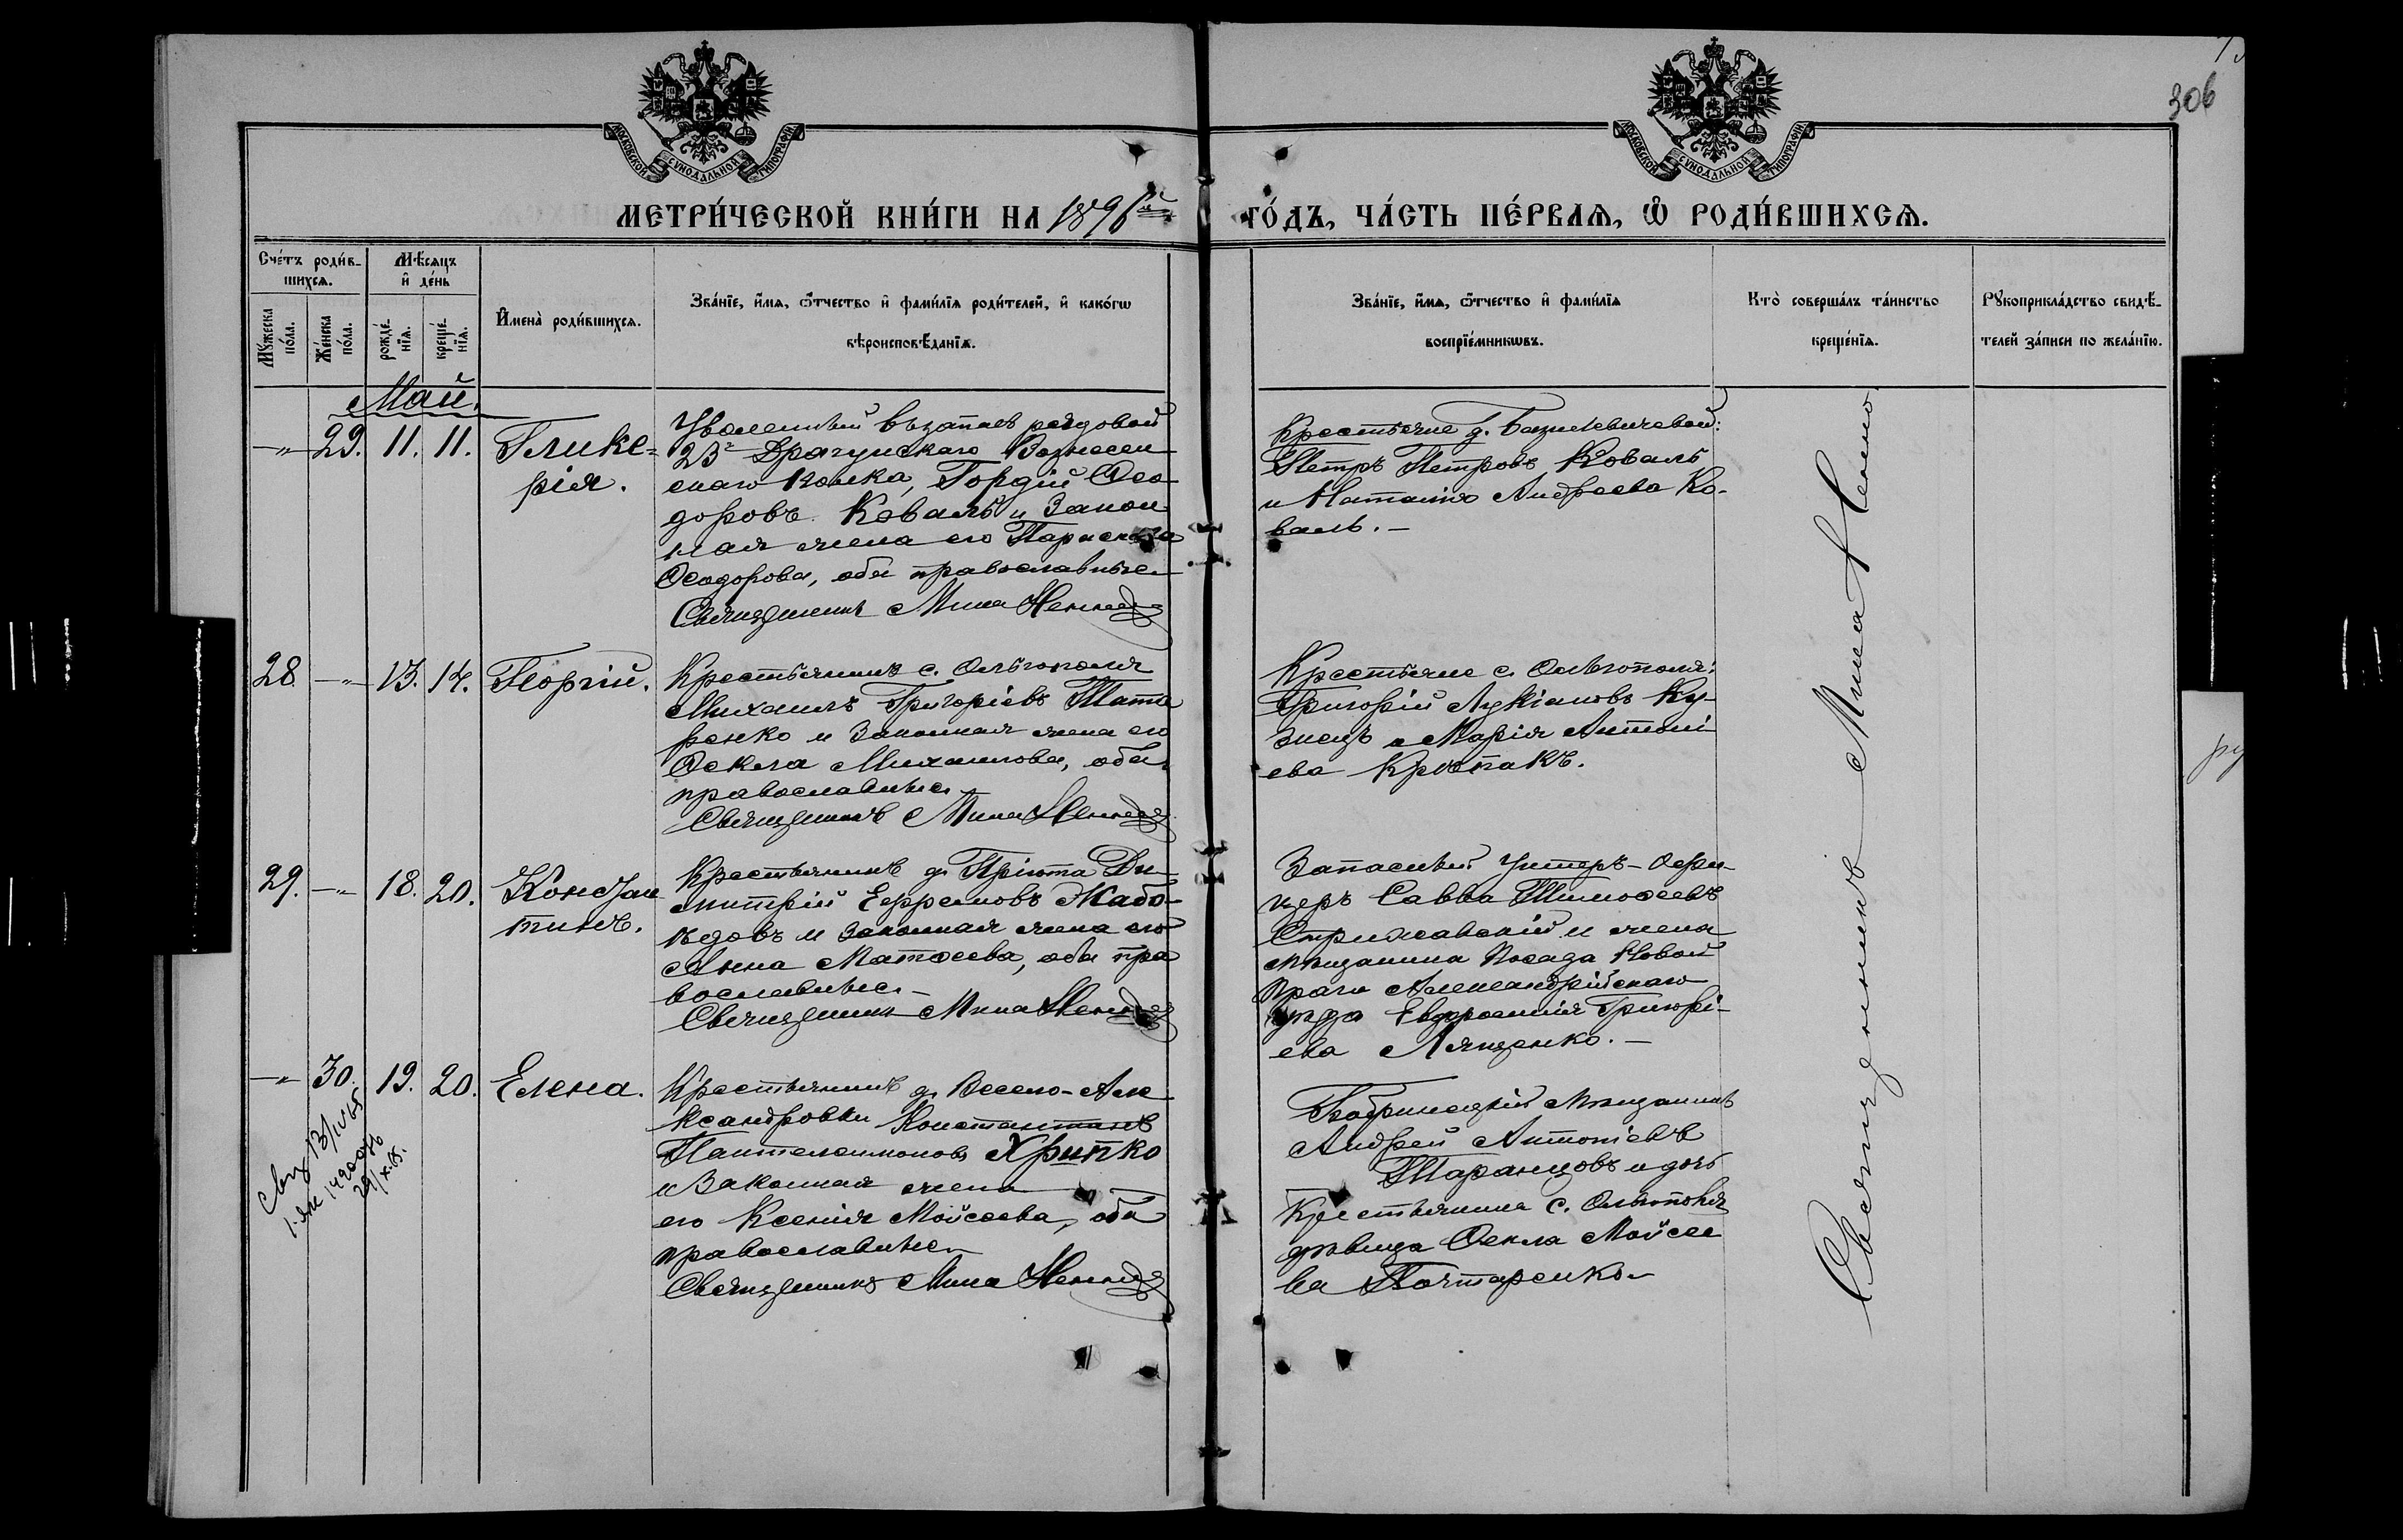 306
МОСКОВСКОЙ СѴНОДАЛЬНОЙ ТИПОГРАФІИ
МОСКОВСКОЙ СѴНОДАЛЬНОЙ ТИПОГРАФІИ
МЕТРИ́ЧЕСКОЙ КНИ́ГИ НА 1896й
ГО́ДЪ, ЧА́СТЬ ПЕ́РВАѦ, Ѡ҆ РОДИ́ВШИХСѦ.
Сче́тъ роди́в-
шихсѧ.
Мѣ́сѧцъ
и҆ де́нь
Мꙋ́жеска
по́ла.
Же́нска
по́ла.
рожде́-
нїѧ.
креще́-
нїѧ.
И҆мена̀ роди́вшихсѧ.
Зва́нїе, и҆́мѧ, ѻ҆́тчество и҆ фами́лїѧ роди́телей, и҆ како́гѡ
вѣроисповѣ́данїѧ.
Зва́нїе, и҆́мѧ, ѻ҆́тчество и҆ фами́лїѧ
воспрїе́мникѡвъ.
Кто̀ соверша́лъ та́инство
креще́нїѧ.
Рꙋкоприкла́дство свидѣ́-
телей за́писи по жела́нїю.
Май.
—„— 29. 11. 11. Глике=
рія.
Уволенный въ запасъ рядовой
23го Драгунскаго Вознесен
скаго полка, Гордій Ѳео
доровъ Коваль и Закон
ная жена его Параскева
Ѳеодорова, оба православные
Священникъ Мина
Крестьяне д. Базилевичевой:
Петръ Петровъ Коваль
и Наталія Андреева Ко-
валь. —
28. —„— 13. 14. Георгій.
Крестьянинъ с. Ольгополя
Михаилъ Григоріевъ Тата
ренко и Законная жена его
Ѳекла Михаилова, оба
православные
Священникъ Мина
Крестьяне с. Ольгополя:
Григорій Лукіановъ Ку-
знецъ и Марія Антоні
ева
29. —„— 18. 20. Констан
тинъ.
Крестьянинъ д. Пріюта Ди-
митрій Ефремовъ Жабо-
ѣдовъ и Законная жена его
Анна Матѳеева, оба пра
вославные
Священникъ Мина
Запасный Унтеръ-Офи-
церъ Савва Тимоѳеевъ
Стрижавскій и жена
мѣщанина Посада Новой
Праги Александрійскаго
уѣзда Евфросинія Григорі-
ева Лященко. —
—„— 30. 19. 20. Елена.
Крестьянинъ д. Весело-Але
ксандровки Константинъ
Пантелеимоновъ Хрипко
и Законная жена
его Ксенія Моѵсеева, оба
православные
Священникъ Мина
Бобринецкій Мѣщанинъ
Андрей Антоніевъ
Таранцовъ и дочь
Крестьянина с. Ольгополя
дѣвица Ѳекла Мойсее
ва Почтаренко
Священникъ Мина